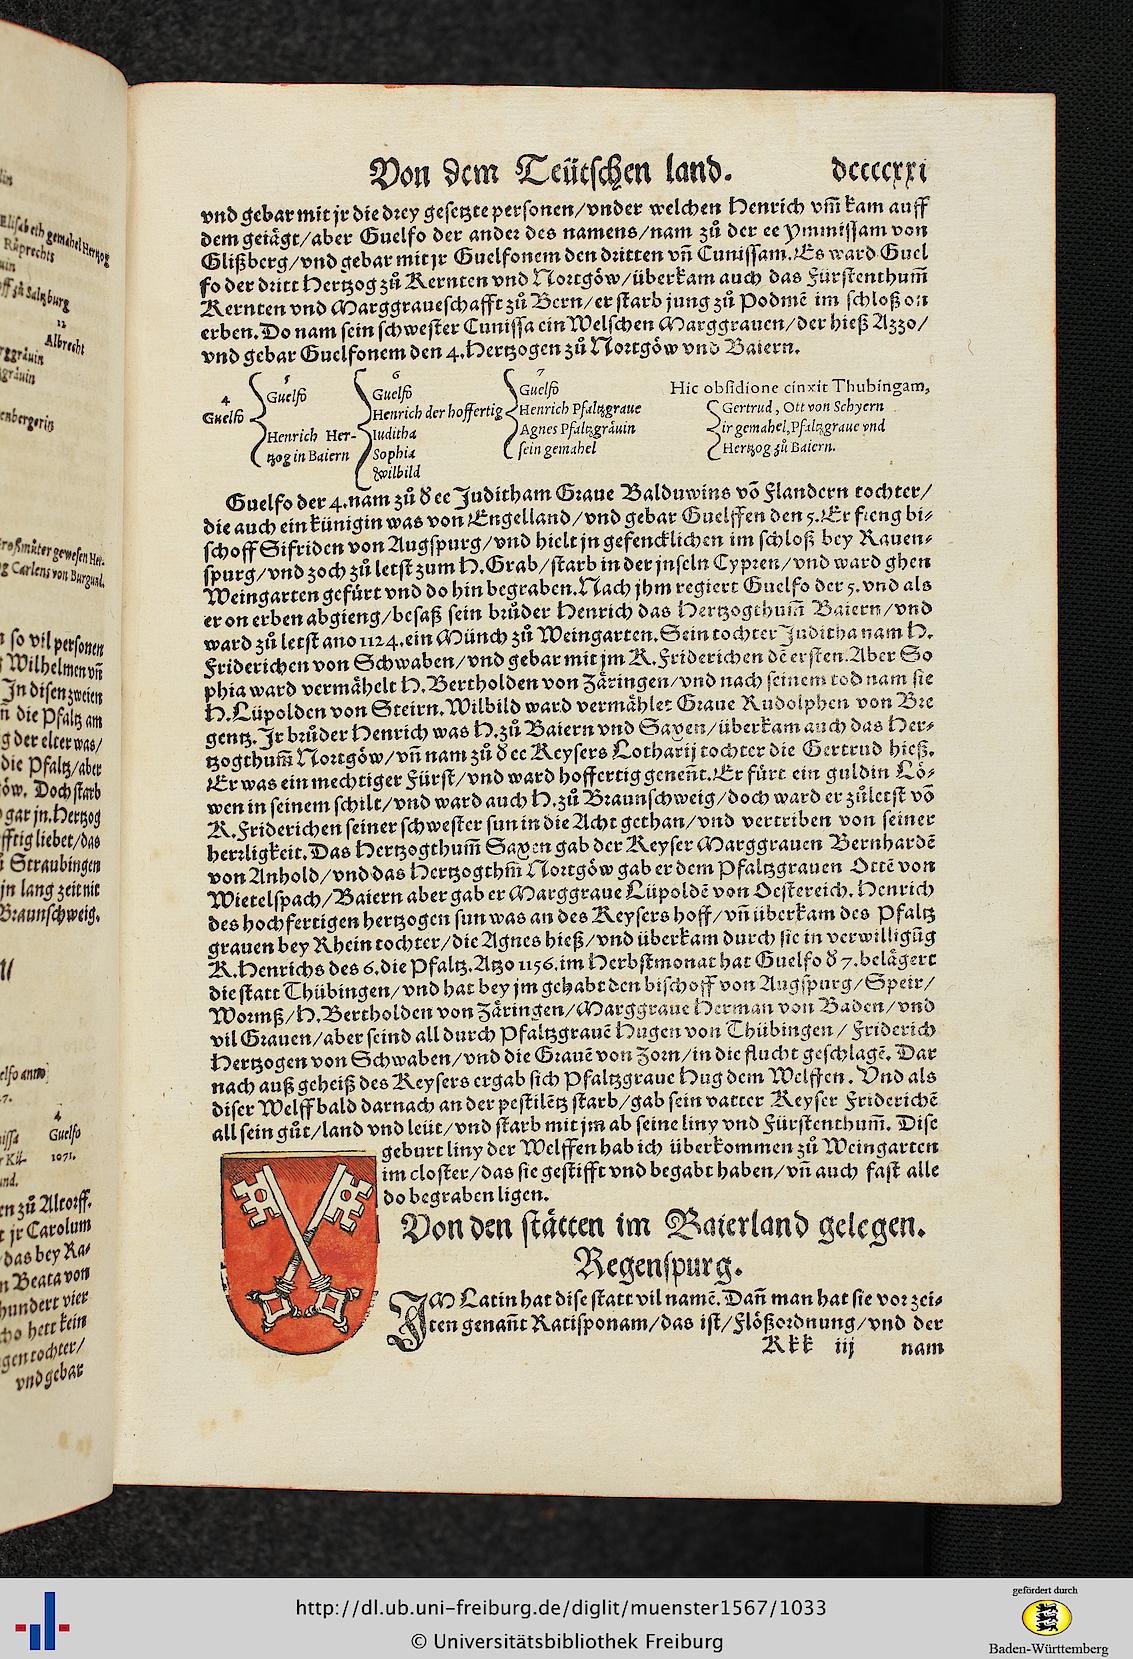 Von dem Teütschen land. dccccxxi
vnd gebar mit jr die drey gesetzte personen/vnder welchen Henrich vm̃ kam auff
dem geiägt/aber Guelfo der ander des namens/nam zů der ee Ymmissam von
Glißberg/vnd gebar mit jr Guelfonem den dritten vñ Cunissam. Es ward Guel
fo der dritt Hertzog zů Kernten vnd Nortgöw/überkam auch das Fürstenthum̃
Kernten vnd Marggraueschafft zů Bern/er starb jung zů Podmẽ im schloß on
erben. Do nam sein schwester Cunissa ein Welschen Marggrauen/der hieß Azzo/
vnd gebar Guelfonem den 4. Hertzogen zů Nortgöw vnd Baiern.
4
Guelfo
5
Guelfo
Henrich Her-
tzog in Baiern
6
Guelfo
Henrich der hoffertig
Iuditha
Sophia
Wilbild
7
Guelfo
Henrich Pfaltzgraue
Agnes Pfaltzgräuin
sein gemahel
Hic obsidione cinxit Thubingam,
Gertrud, Ott von Schyern
ir gemahel, Pfaltzgraue vnd
Hertzog zů Baiern.
Guelfo der 4. nam zů d' ee Juditham Graue Balduwins võ Flandern tochter/
die auch ein künigin was von Engelland/vnd gebar Guelffen den 5. Er fieng bi-
schoff Sifriden von Augspurg/vnd hielt jn gefencklichen im schloß bey Rauen-
spurg/vnd zoch zů letst zum H. Grab/starb in der jnseln Cypren/vnd ward ghen
Weingarten gefürt vnd do hin begraben. Nach jhm regiert Guelfo der 5. vnd als
er on erben abgieng/besaß sein brůder Henrich das Hertzogthum̃ Baiern/vnd
ward zů letst ano 1124. ein Münch zů Weingarten. Sein tochter Juditha nam H.
Friderichen von Schwaben/vnd gebar mit jm K. Friderichen dẽ ersten. Aber So
phia ward vermähelt H. Bertholden von Zäringen/vnd nach seinem tod nam sie
H. Lüpolden von Steirn. Wilbild ward vermählet Graue Rudolphen von Bre
gentz. Jr brůder Henrich was H. zů Baiern vnd Saxen/überkam auch das Her-
tzogthum̃ Nortgöw/vñ nam zů d' ee Keysers Lotharij tochter die Gertrud hieß.
Er was ein mechtiger Fürst/vnd ward hoffertig geneñt. Er fürt ein guldin Lö-
wen in seinem schilt/vnd ward auch H. zů Braunschweig/doch ward er zůletst võ
K. Friderichen seiner schwester sun in die Acht gethan/vnd vertriben von seiner
herrligkeit. Das Hertzogthum̃ Saxen gab der Keyser Marggrauen Bernhardẽ
von Anhold/vnd das Hertzogthm̃ Nortgöw gab er dem Pfaltzgrauen Ottẽ von
Wietelspach/Baiern aber gab er Marggraue Lüpoldẽ von Oestereich. Henrich
des hochfertigen hertzogen sun was an des Keysers hoff/vñ überkam des Pfaltz
grauen bey Rhein tochter/die Agnes hieß/vnd überkam durch sie in verwilligũg
K. Henrichs des 6. die Pfaltz. Atzo 1156. im Herbstmonat hat Guelfo d' 7. belägert
die statt Thübingen/vnd hat bey jm gehabt den bischoff von Augspurg/Speir/
Wormß/H. Bertholden von Zäringen/Marggraue Herman von Baden/vnd
vil Grauen/aber seind all durch Pfaltzgrauẽ Hugen von Thübingen/Friderich
Hertzogen von Schwaben/vnd die Grauẽ von Zorn/in die flucht geschlagẽ. Dar
nach auß geheiß des Keysers ergab sich Pfaltzgraue Hug dem Welffen. Vnd als
diser Welff bald darnach an der pestilẽtz starb/gab sein vatter Keyser Friderichẽ
all sein gůt/land vnd leüt/vnd starb mit jm ab seine liny vnd Fürstenthum̃. Dise
geburt liny der Welffen hab ich überkommen zů Weingarten
im closter/das sie gestifft vnd begabt haben/vñ auch fast alle
do begraben ligen.
Von den stätten im Baierland gelegen.
Regenspurg.
JM Latin hat dise statt vil namẽ. Dañ man hat sie vor zei-
ten genañt Ratisponam/das ist/Flößordnung/vnd der
Kkk iij nam
Elisabeth gemahel Hertzog
Růprechts
zů Saltzburg
12
Albrecht
Großmůter gewesen Her-
Carlens von Burgund.
so vil personen
Wilhelmen vñ
Jn disen zweien
die Pfaltz am
der elter was/
die Pfaltz/aber
Doch starb
gar jn. Hertzog
liebet/das
Straubingen
jn lang zeit nit
Braunschweig.
4
Guelfo
1071.
zů Altorff.
jr Carolum
das bey Ra-
Beata von
hundert vier
hett kein
tochter/
vnd gebar
http://dl.ub.uni-freiburg.de/diglit/muenster1567/1033
© Universitätsbibliothek Freiburg
gefördert durch
Baden-Württemberg